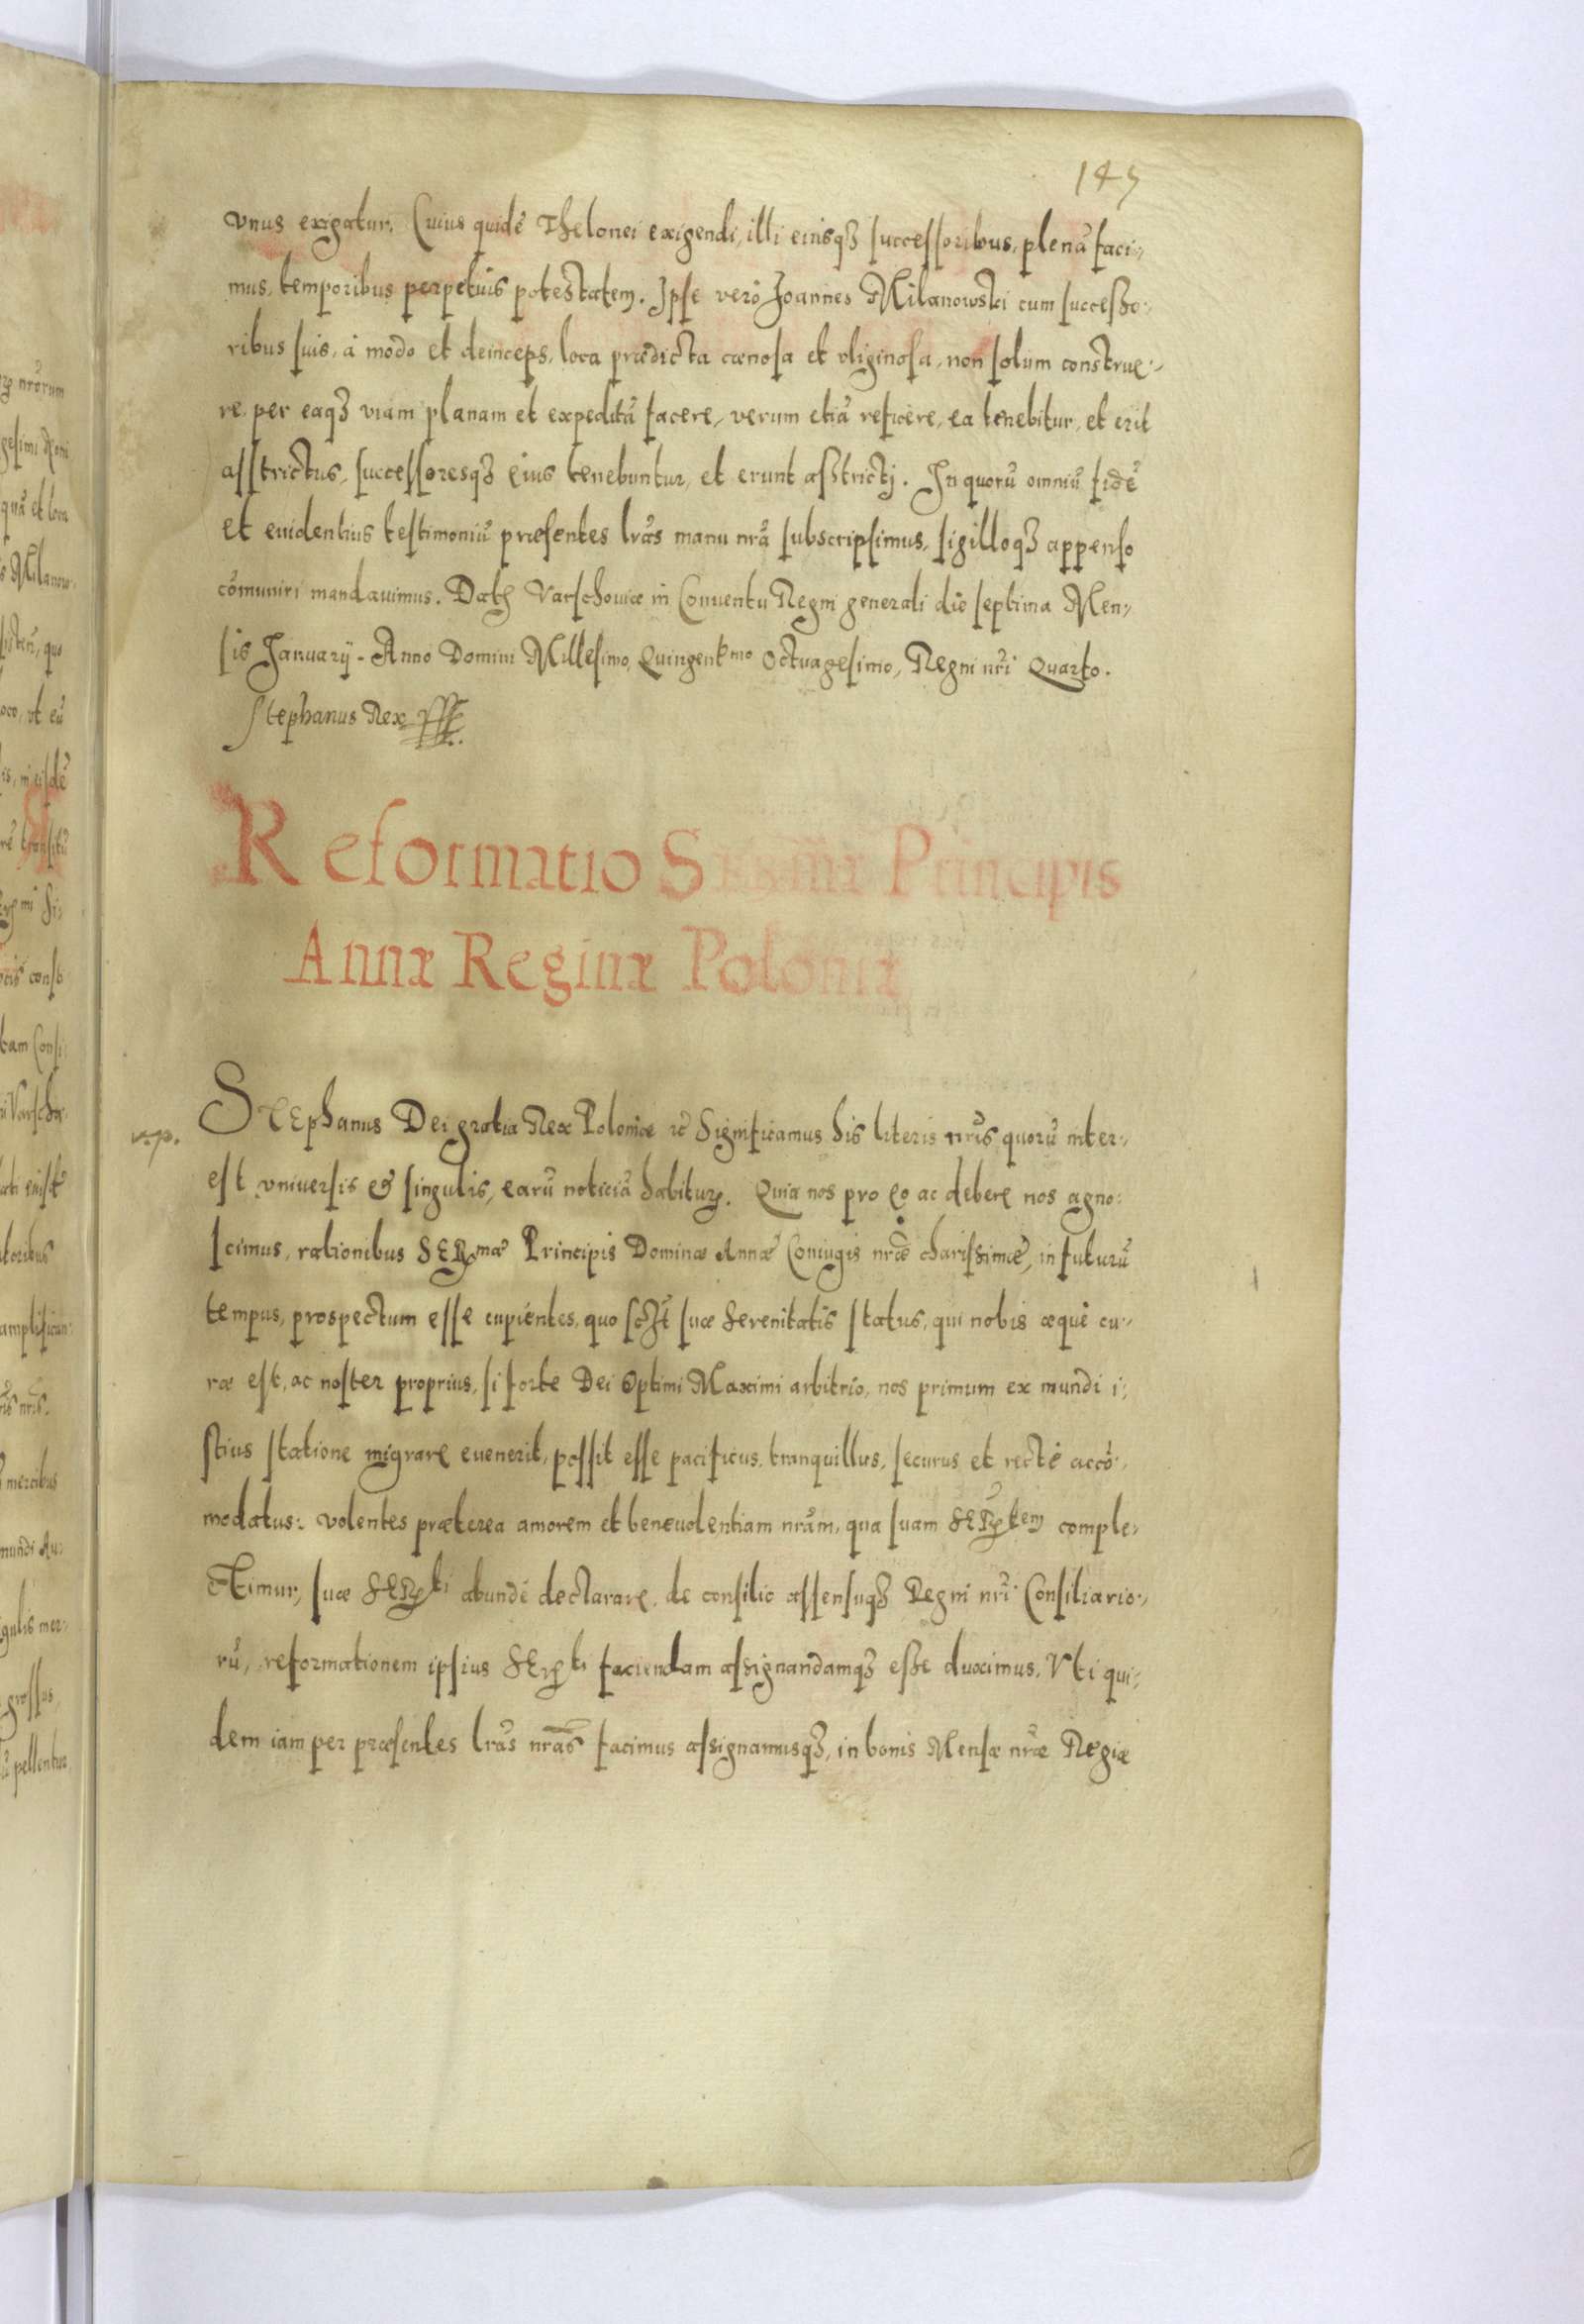 145
vnus exigatur. Cuius quidẽ Thelonei exigendi, illi eiusqꝫ successoribus, plenã faci-
mus, temporibus perpetuis potestatem. Ipse verò Joannes Milanowski cum successo-
ribus suis, à modo et deinceps, loca prædicta cænosa et vliginosa, non solùm construe-
re, per eaqꝫ viam planam et expeditã facere, verum etiã reficere, ea tenebitur, et erit
asstrictus, successoresqꝫ eius tenebuntur, et erunt asstricti. In quorũ omniũ fidẽ
et euidentius testimoniũ præsentes lrãs manu nrã subscripsimus, sigilloqꝫ appenso
cõmuniri mandauimus. Datꝭ Varschouiæ in Conuentu Regni generali die septima Men-
sis Januarij. Anno Domini Millesimo, Quingentmo Octuagesimo, Regni nrĩ Quarto.
Stephanus Rex
Reformatio Principis
Annæ Reginæ Poloniæ
v.p.
Stephanus Dei gratia Rex Poloniæ ꝛc̃ Significamus his literis nrĩs quorũ inter-
est vniuersis et singulis, earũ noticiã habiturꝭ. Quia nos pro eo ac deberꝭ nos agno-
scimus, rationibus SERmæ Principis Dominæ Annæ Coniugis nrẽ charissimæ, in futurũ
tempus, prospectum esse cupientes, quo suæ Serenitatis status, qui nobis æquè cu-
ræ est, ac noster proprius, si forte Dei Optimi Maximi arbitrio, nos primum ex mundi i-
stius statione migrarꝭ euenerit, possit esse pacificus, tranquillus, securus et rectè accõ-
modatus: volentes præterea amorem et beneuolentiam nrãm, qua suam SERtem comple-
ctimur, suæ SERti abundè declararꝭ, de consilio assensuqꝫ Regni nrĩ Consiliario-
rũ, reformationem ipsius SERti faciendam assignandamqꝫ esse duximus. Vti qui-
dem iam per præsentes lrãs nrãs facimus assignamusqꝫ, in bonis Mensæ nrẽ Regiæ